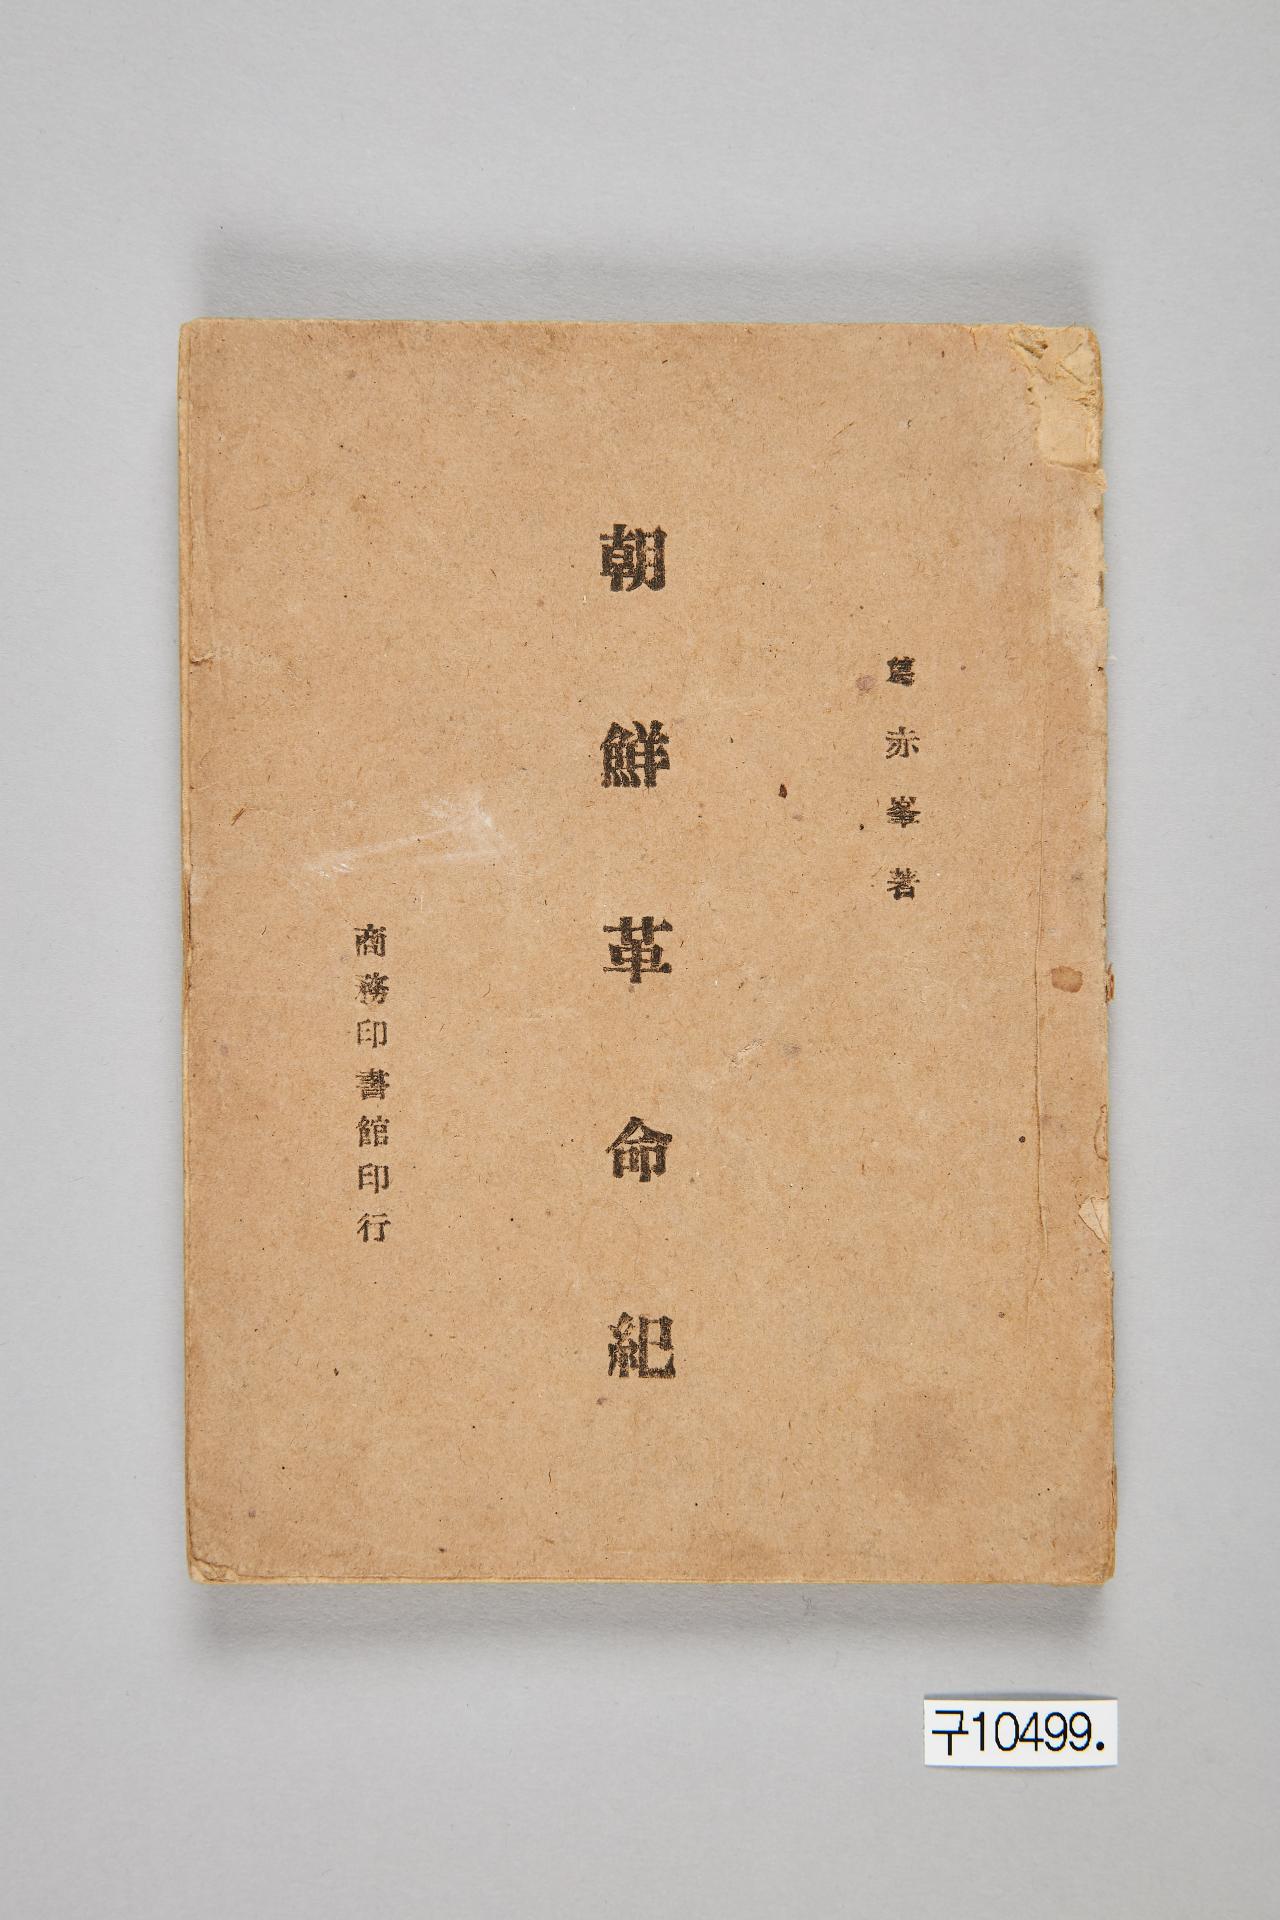 葛赤峯著
朝鮮革命紀
商務印書館印行
구10499.